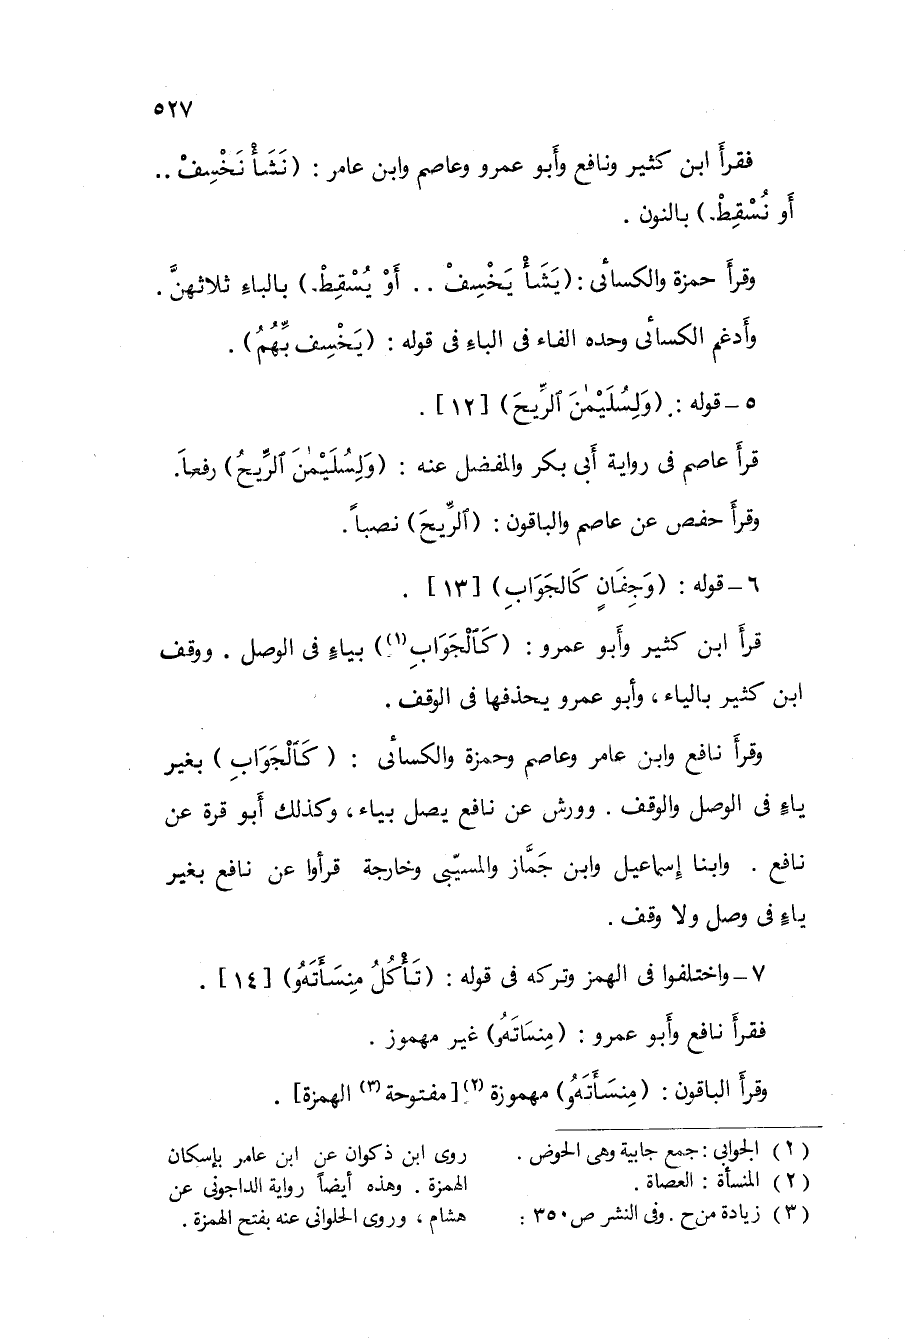 ٥٢٧
فقرأ ابن كثير ونافع وأبو عمرو وعاصم وابن عامر : (نَشَأْ نَخْسِفْ ..
أو نُسْقِطْ.) بالنون .
وقرأ حمزة والكسائى : (يَشَأْ يَخْسِفْ .. أَوْ يُسْقِطْ.) بالياءِ ثلاثهنَّ .
وأدغم الكسائى وحده الفاء فى الباءِ فى قوله : (يَخْسِف بِّهُمُ) .
٥ – قوله : (وَلِسُلَيْمَٰنَ ٱلرِّيحَ) [١٢] .
قرأ عاصم فى رواية أبى بكر والمفضل عنه : (وَلِسُلَيْمَٰنَ ٱلرِّيحُ) رفعاً.
وقرأ حفص عن عاصم والباقون : (ٱلرِّيحَ) نصباً .
٦ – قوله : (وَجِفَانٍ كَالجَوَابِ) [١٣] .
قرأ ابن كثير وأبو عمرو : (كَٱلْجَوَابِ(١)) بياءٍ فى الوصل . ووقف
ابن كثير بالياء ، وأبو عمرو يحذفها فى الوقف .
وقرأ نافع وابن عامر وعاصم وحمزة والكسائى : (كَٱلْجَوَابِ) بغير
ياءٍ فى الوصل والوقف . وورش عن نافع يصل بياء ، وكذلك أبو قرة عن
نافع . وابنا إسماعيل وابن جَمَّاز والمسيّبى وخارجة قرأوا عن نافع بغير
ياءٍ فى وصل ولا وقف .
٧ – واختلفوا فى الهمز وتركه فى قوله : (تَأْكُلُ مِنسَأَتَهُو) [١٤] .
فقرأ نافع وأبو عمرو : (مِنسَاتَهُو) غير مهموز .
وقرأ الباقون : (مِنسَأَتَهُو) مهموزة (٢) [مفتوحة (٣) الهمزة] .
(١) الجوابى : جمع جابية وهى الحوض .
(٢) المنسأة : العصاة .
(٣) زيادة من ح . وفى النشر ص ٣٥٠ :
روى ابن ذكوان عن ابن عامر بإسكان
الهمزة . وهذه أيضاً رواية الداجونى عن
هشام ، وروى الحلوانى عنه بفتح الهمزة .